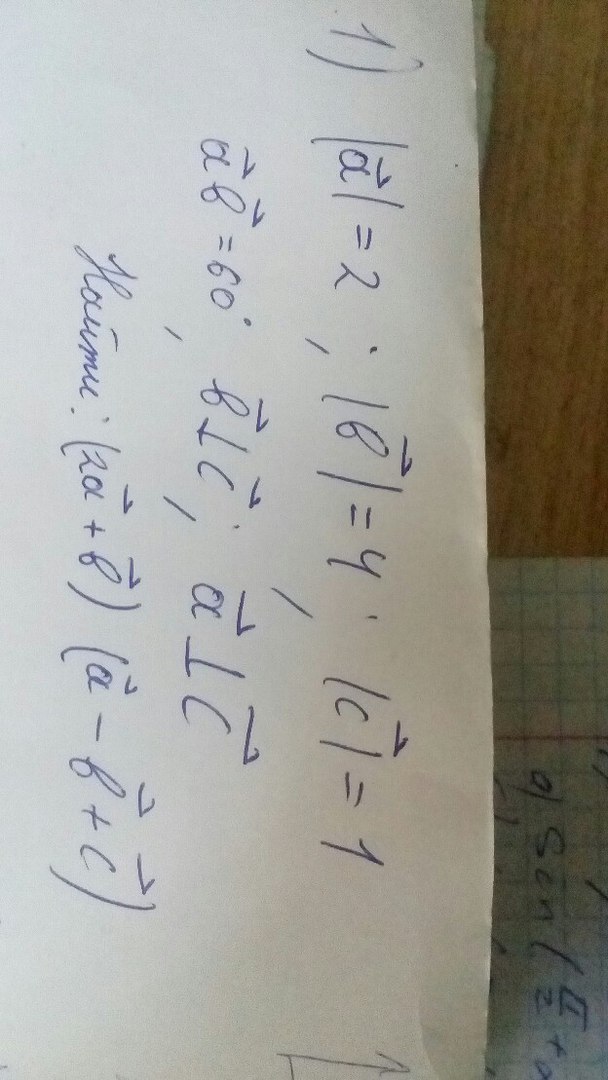 1) |a⃗| = 2 ; |b⃗| = 4 ; |c⃗| = 1
a⃗ b⃗ = 60° , b⃗ ⊥ c⃗ ; a⃗ ⊥ c⃗
Найти: (2a⃗ + b⃗) (a⃗ − b⃗ + c⃗)
g) Sin (π/2 +